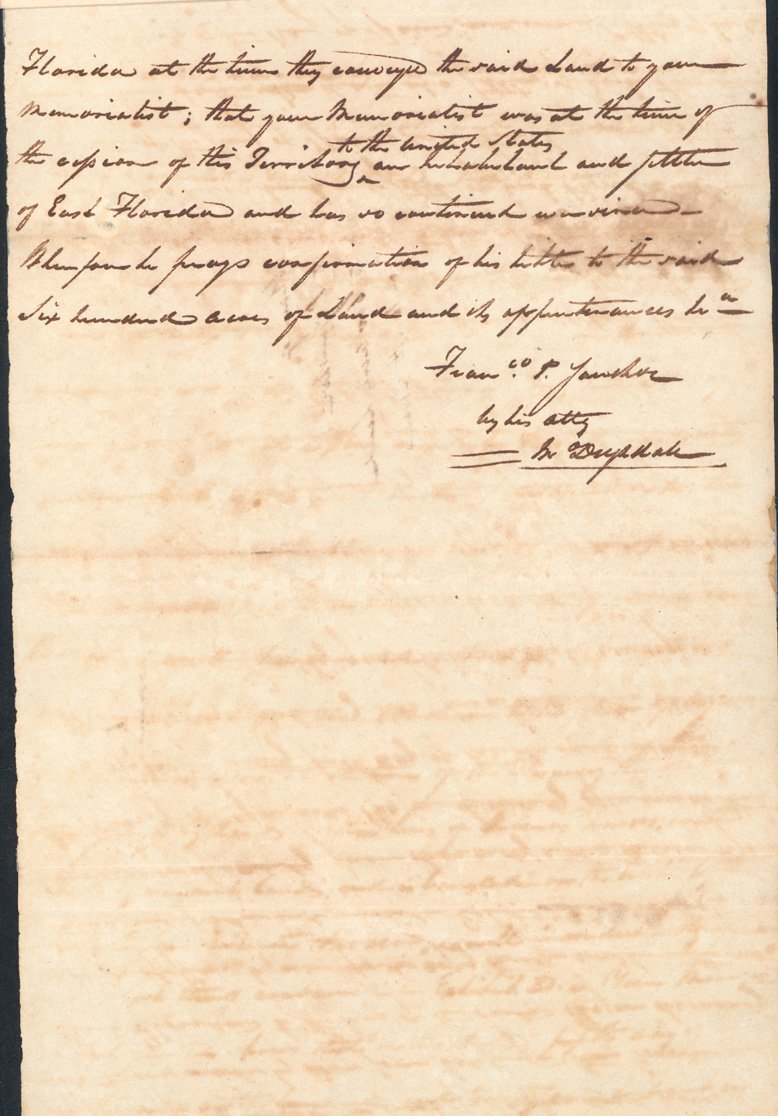 Florida at the time they conveyed the said Land to your
Memorialist; that your Memorialist was at the time of
to the United States
the cession of this Territory an Inhabitant and settler
of East Florida and has so continued ever since
Wherefore he prays confirmation of his title to the said
Six hundred acres of Land and its appurtenances &ca
Franco. P. Sanchez
by his atty